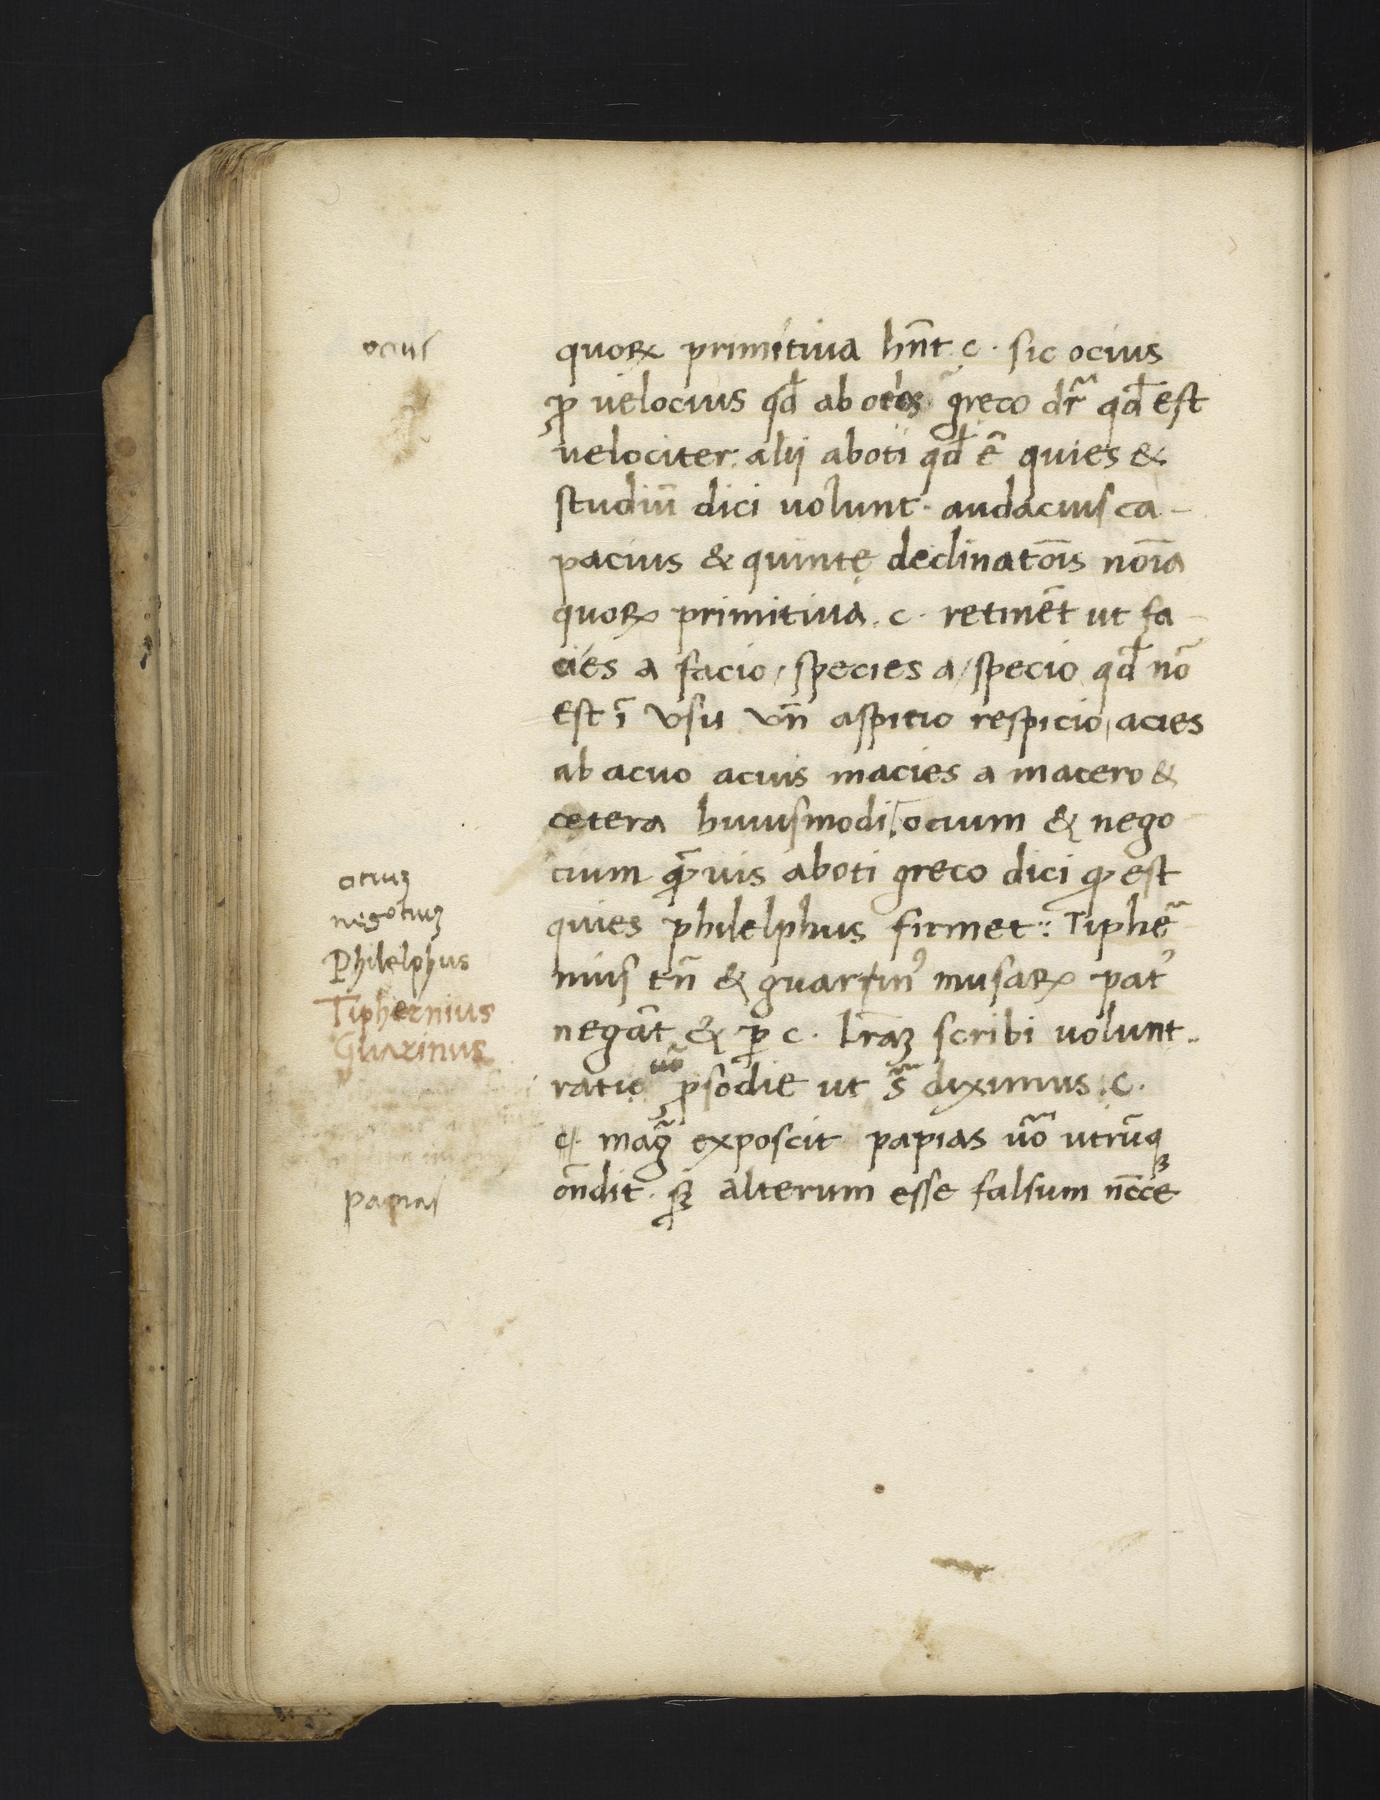 ocius
quoꝝ primitiua hn̄t c. sic ocius
ꝓ uelocius qd̄ ab greco dr̄ qd̄ est
uelociter: alij aboti qd̄ ē quies &
studiū dici uolunt. audacius ca-
pacius & quintę declinatōis nōia
quoꝝ primitiua. c. retinēt ut fa-
cies a facio, species a specio qd̄ nō
est ī vsu vn̄ aspitio respicio, acies
ab acuo acuis macies a macero &
cetera huiusmodi, ocium & nego-
cium ꝙ̄uis aboti greco dici ꝙ est
quies philelphus firmet: Tiphē-
nius tn̄ & guarin᾽ musaꝝ pat᾽
negāt & ꝑ c. lr̄aꝫ scribi uolunt.
ratio uō ꝓsodie ut s̄ diximus. c.
c. mag̃ exposcit papias uō utrūqꝫ
ōndit. sꝫ alterum esse falsum nēcē
ociuꝫ
negotiuꝫ
Philelphus
Tiphernius
Guarinus
papias